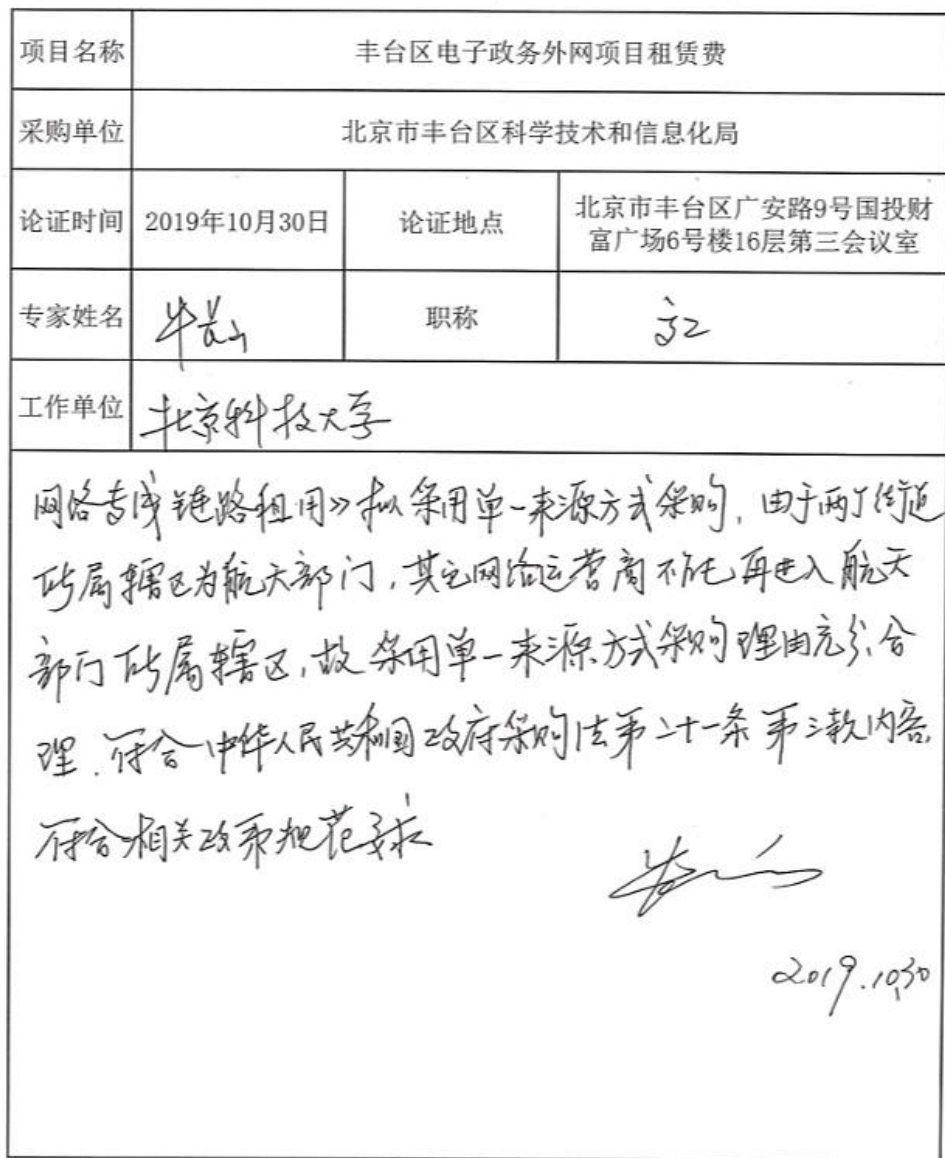 项目名称 丰台区电子政务外网项目租赁费
采购单位 北京市丰台区科学技术和信息化局
论证时间 2019年10月30日 论证地点 北京市丰台区广安路9号国投财
富广场6号楼16层第三会议室
专家姓名 牛长山 职称 高工
工作单位 北京科技大学
网络专线链路租用》拟采用单一来源方式采购,由于两个街道
所属辖区为航天部门,其它网络运营商不能再进入航天
部门所属辖区,故采用单一来源方式采购理由充分、合
理.符合中华人民共和国政府采购法第三十一条第三款内容,
符合相关政策规范要求
2019.10.30